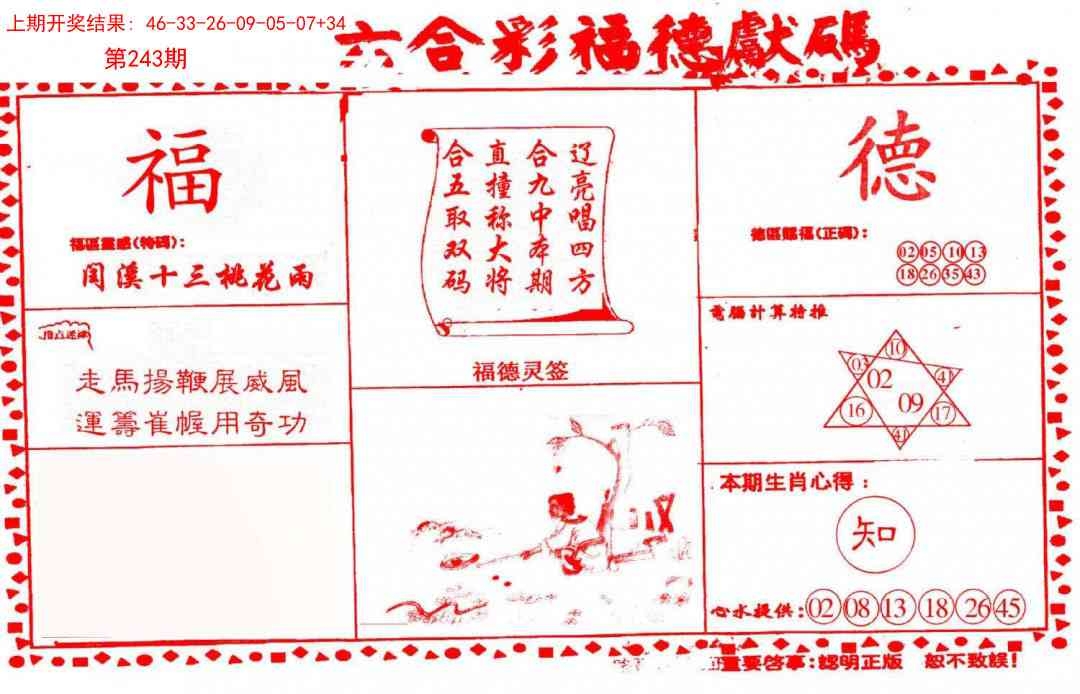 上期开奖结果：46-33-26-09-05-07+34
第243期
六合彩福德獻碼
福
福區靈感(特碼)：
閏溪十三桃花雨
走馬揚鞭展威風
運籌崔幄用奇功
辽亮唱四方
合九中本期
直撞称大将
合五取双码
福德灵签
德
德區賜福(正碼)：
02 05 10 13
18 26 35 43
電腦計算特推
10
03 41
02
09
16 17
41
本期生肖心得：
知
心水提供：02 08 13 18 26 45
重要啓事：認明正版 恕不致誤！